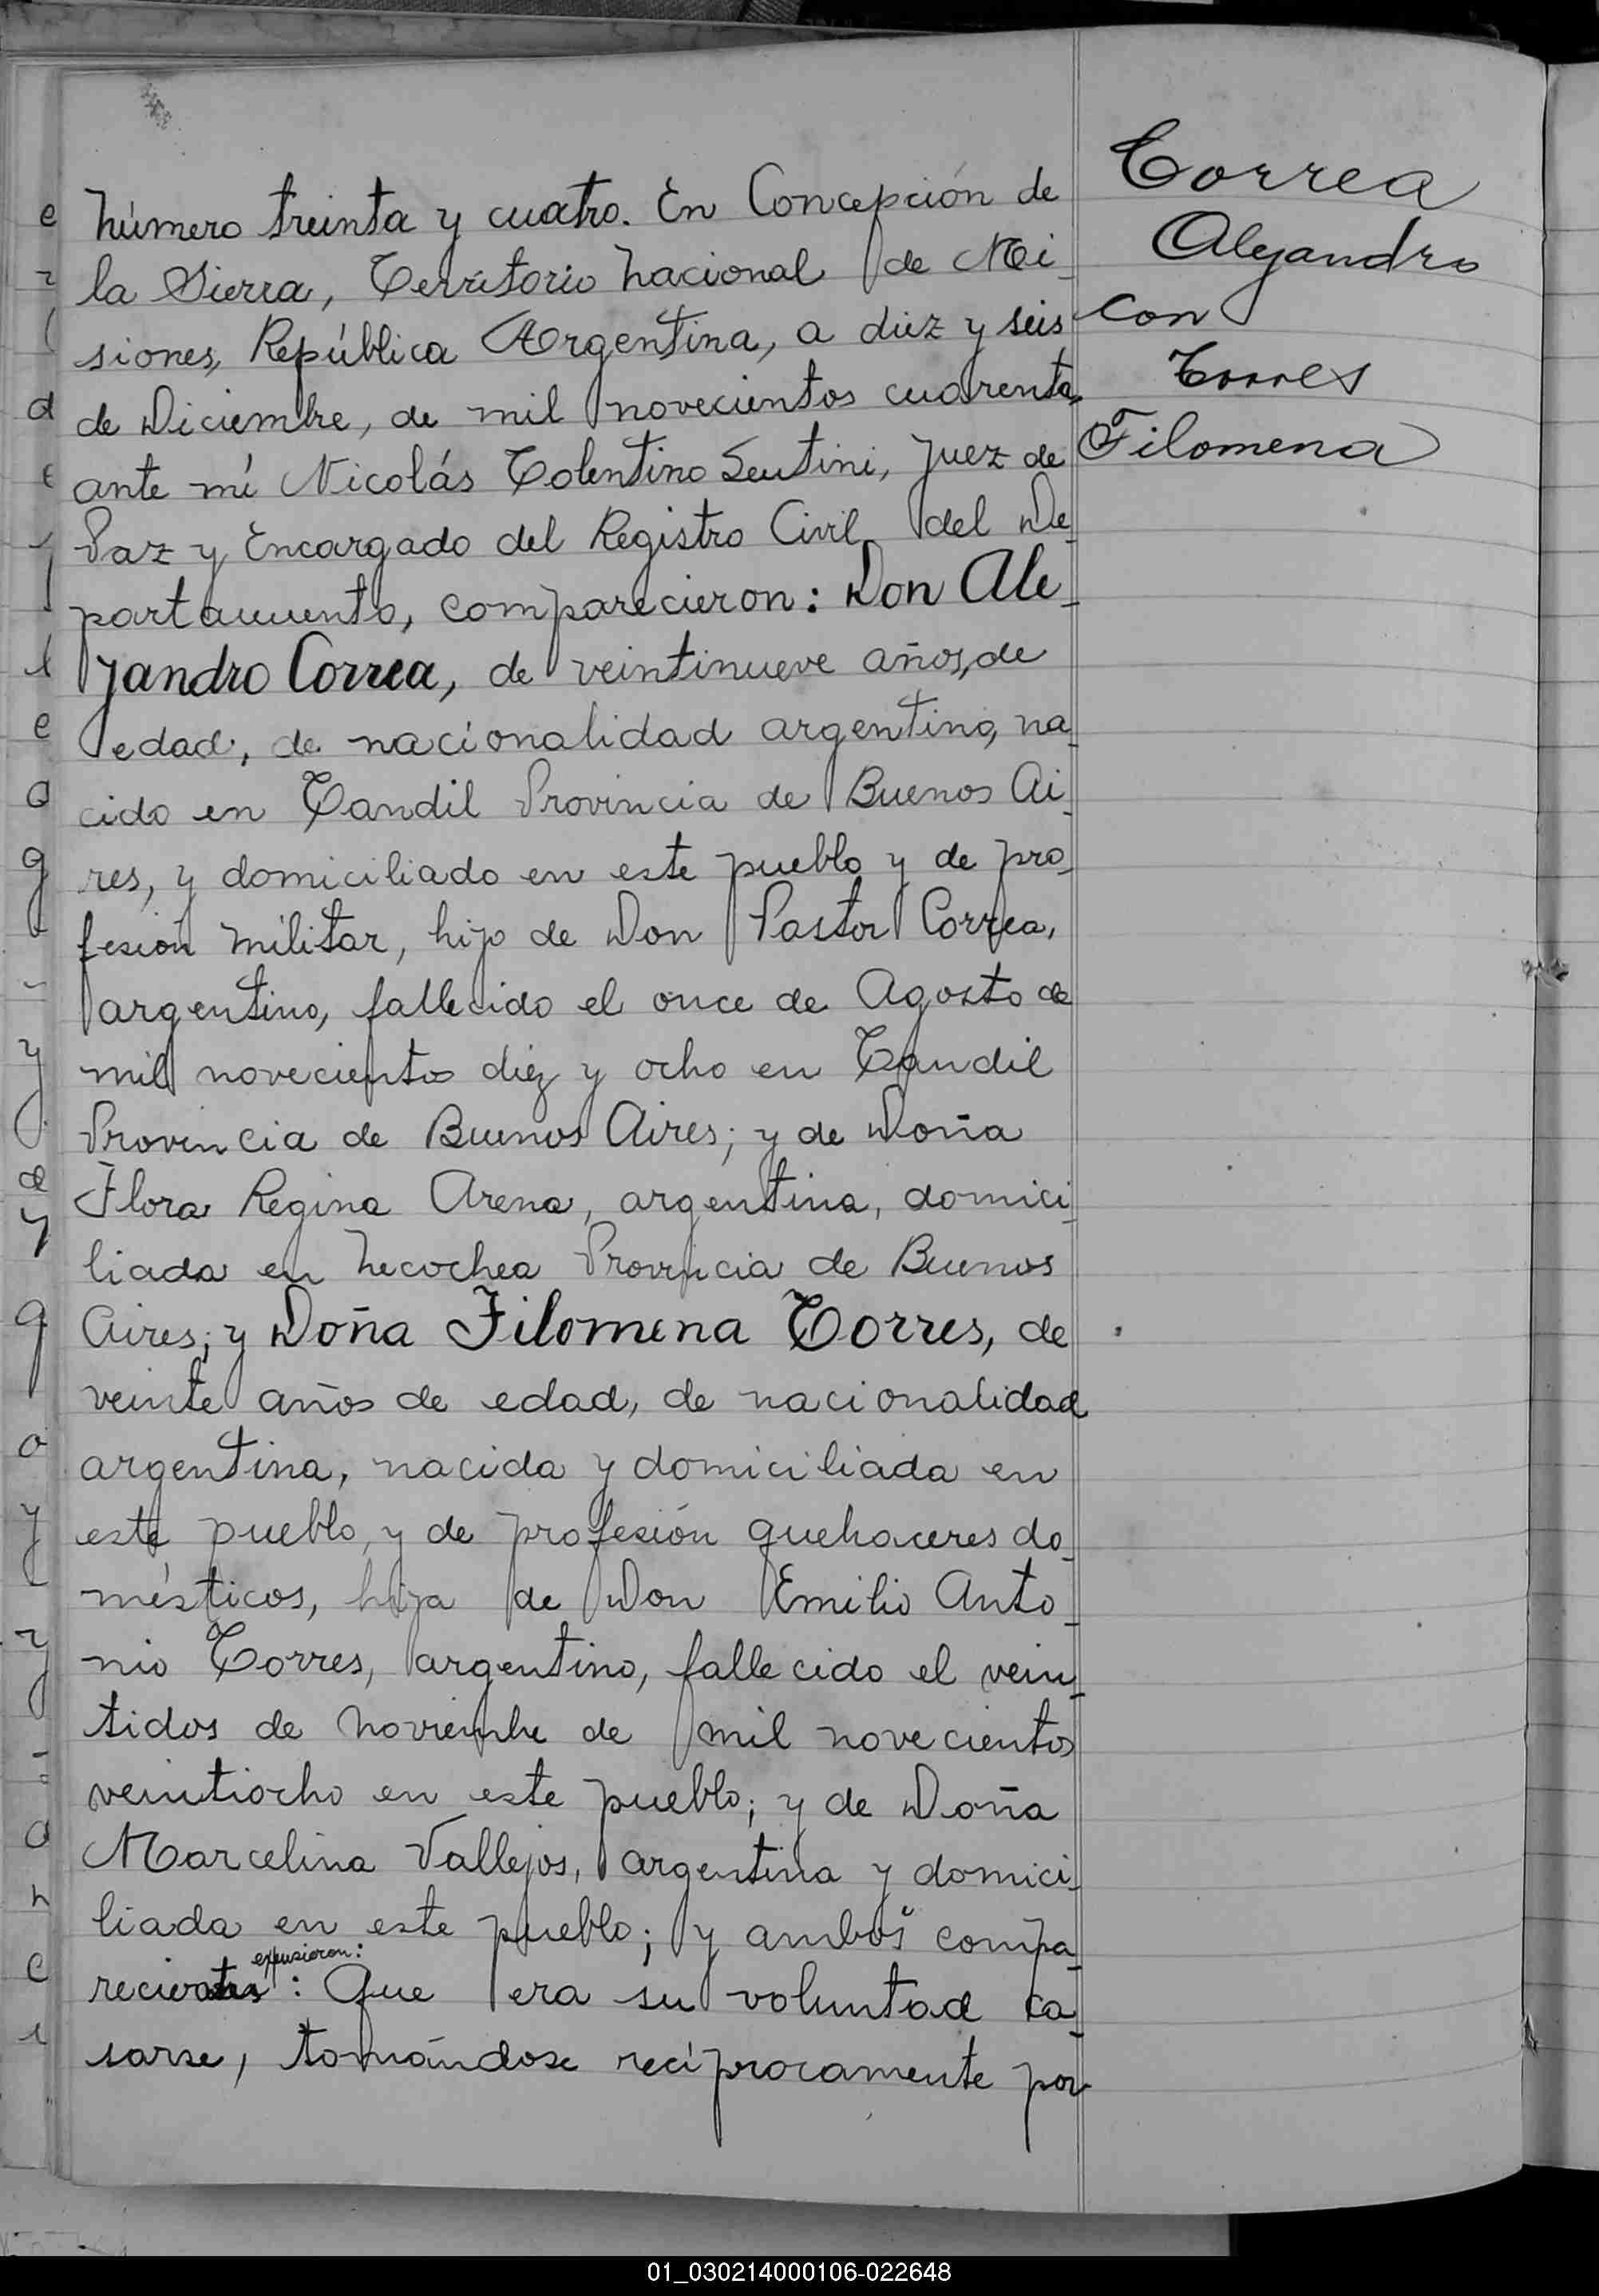 Número treinta y cuatro. En Concepción de
la Sierra, Territorio Nacional de Mi_
siones, República Argentina, a diez y seis
de Diciembre, de mil novecientos cuarenta,
ante mí Nicolás Tolentino Sentini, Juez de
Paz y Encargado del Registro Civil del De_
partamento, comparecieron: Don Ale_
jandro Correa, de veintinueve años, de
edad, de nacionalidad argentino, na_
cido en Tandil Provincia de Buenos Ai_
res, y domiciliado en este pueblo y de pro_
fesión militar, hijo de Don Pastor Correa,
argentino, fallecido el once de Agosto de
mil novecientos diez y ocho en Tandil
Provincia de Buenos Aires; y de Doña
Flora Regina Arena, argentina, domici_
liada en Necochea Provincia de Buenos
Aires; y Doña Filomena Torres, de
veinte años de edad, de nacionalidad
argentina, nacida y domiciliada en
este pueblo, y de profesión quehaceres do_
mésticos, hija de Don Emilio Anto_
nio Torres, argentino, fallecido el vein_
tidos de Noviembre de mil novecientos
veintiocho en este pueblo; y de Doña
Marcelina Vallejos, argentina y domici_
liada en este pueblo; y ambos compa_
expusieron:
: Que era su voluntad ca_
sarse, tomándose recíprocamente por
Correa
Alejandro
con
Torres
Filomena
01_030214000106-022648